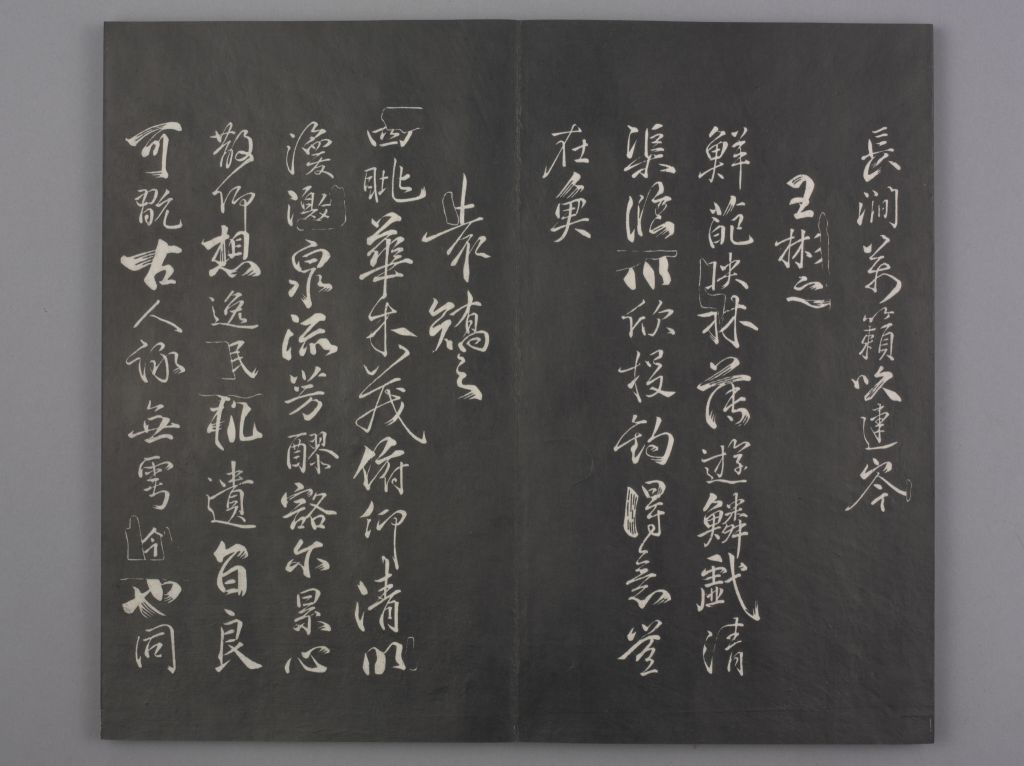 長澗萬籟吹連岑
王彬之
鮮葩映林薄遊鱗戲清
渠臨川欣投釣得意豈
在魚
袁矯之
四眺華木茂俯仰清川
渙激泉流芳醪豁尒累心
散仰想逸民軌遺音良
可翫古人詠無雩今也同